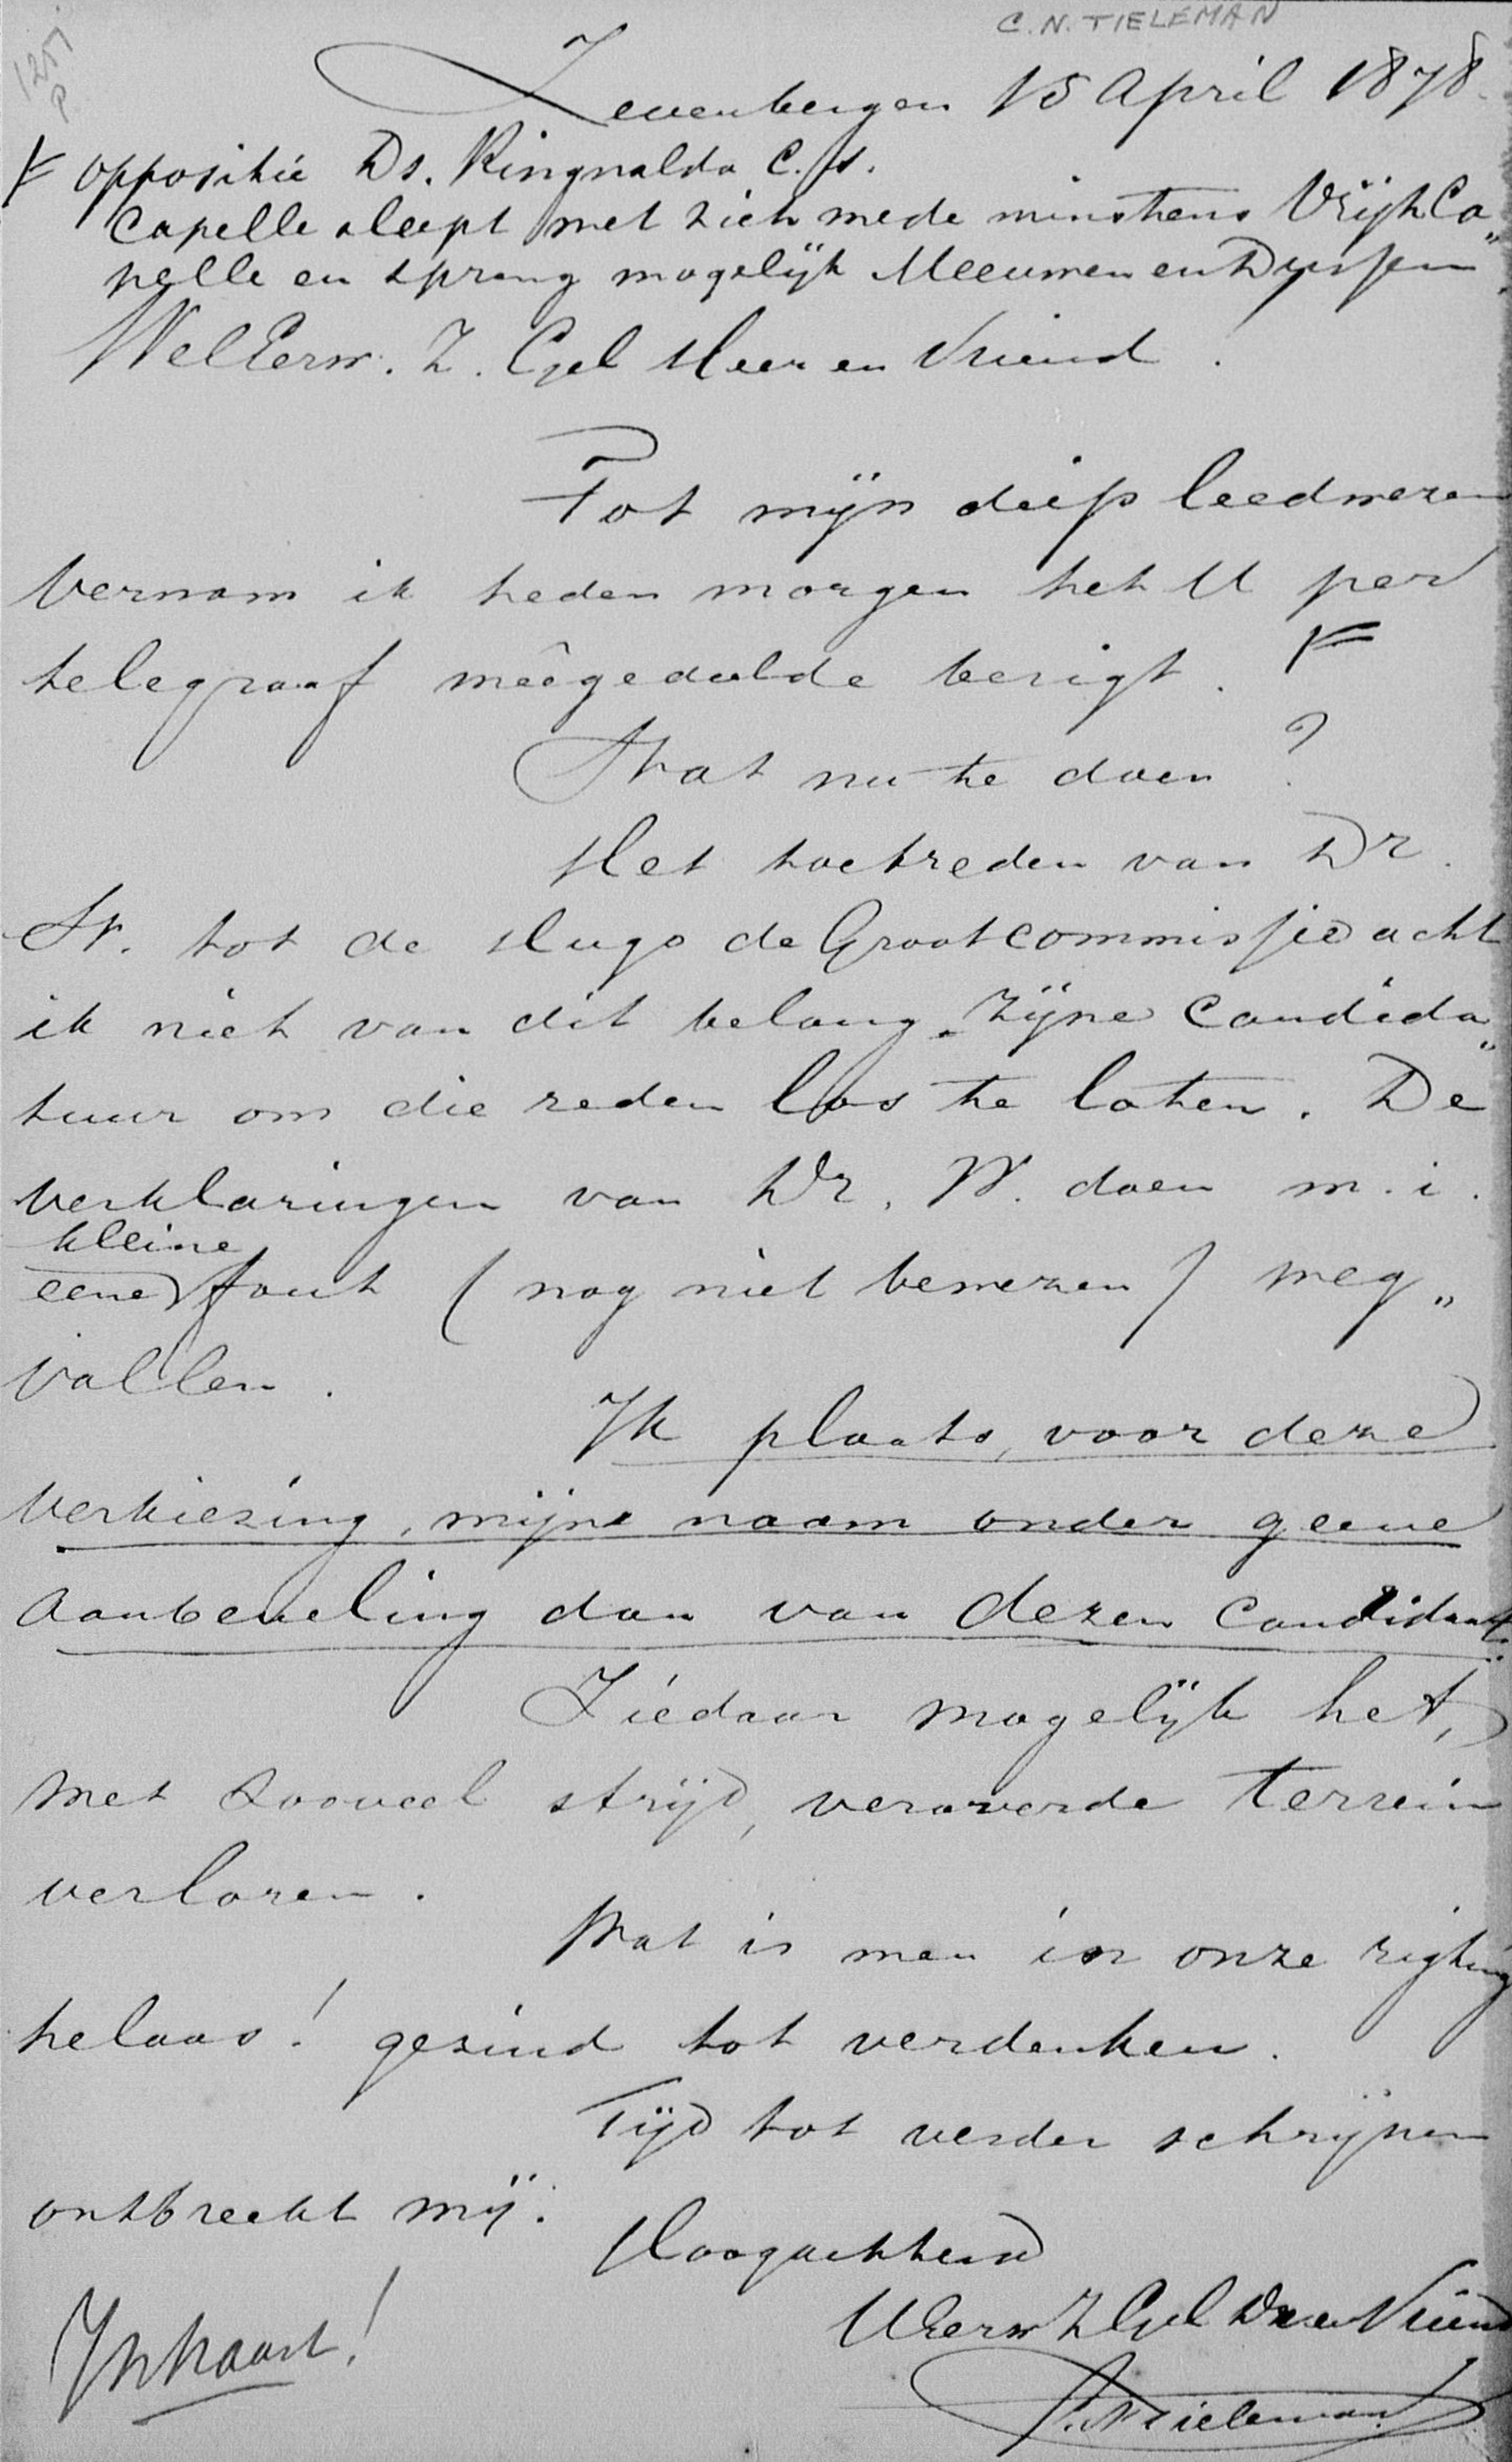 C.N. TIELEMAN
125 P
Zevenbergen 15 April 1878.
F oppositie Ds. Ringnalda C.s.
Capelle sleept met zich mede minstens Vrijh. Ca„
pelle en sprang mogelijk Meeuwen en Dussen
WelEerw. Z. Gel Heer en Vriend.
Tot mijn diep leedwezen
Vernam ik heden morgen het U per
telegraaf meêgedeelde berigt. F
Wat nu te doen?
Het toetreden van Dr.
W. tot de Hugo de Grootcommissie acht
ik niet van dit belang zijne Candida„
tuur om die reden los te laten. De
verklaringen van Dr. W. doen m.i.
kleine
eene fout (nog niet bewezen) weg„
vallen.
Ik plaats, voor deze
verkiezing, mijne naam onder geene
aanbeveling dan van dezen Candidaat.
Ziedaar mogelijk het,
met zooveel strijd, veroverde terrein
verloren.
Wat is men in onze rigting
helaas! gezind tot verdenken.
Tijd tot verder schrijven
ontbreekt mij.
Hoogachtend
UEerw Z Gel Dr en Vriend
C.N. Tieleman
In haast!